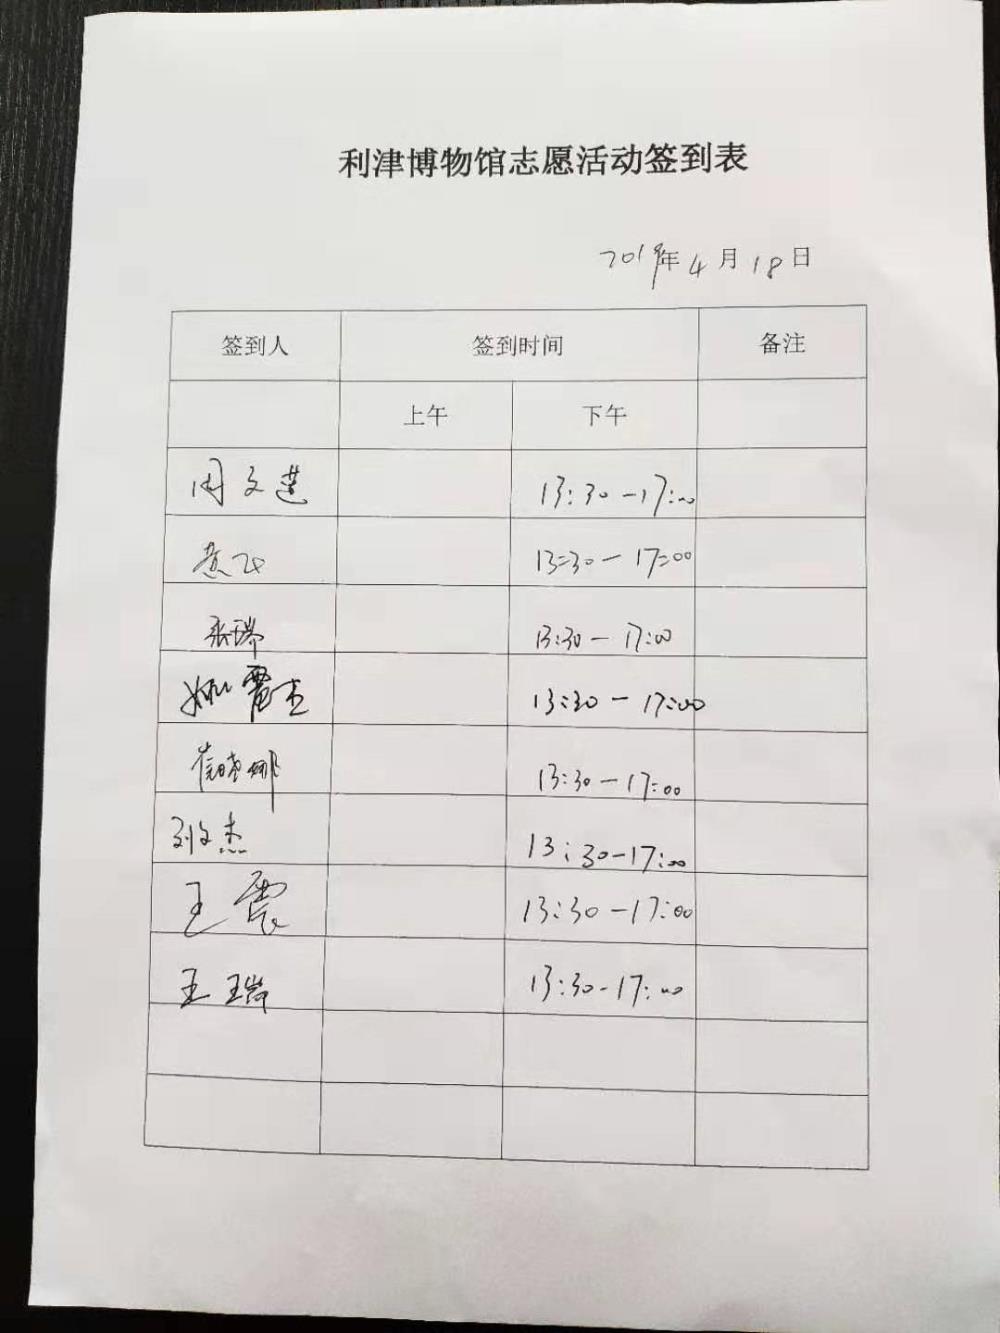 利津博物馆志愿活动签到表
2019年4月18日
签到人 签到时间 备注
上午 下午
周文莲 13:30-17:00
13:30-17:00
张瑞 13:30-17:00
姚霄杰 13:30-17:00
崔晓娜 13:30-17:00
刘文杰 13:30-17:00
王震 13:30-17:00
王瑞 13:30-17:00